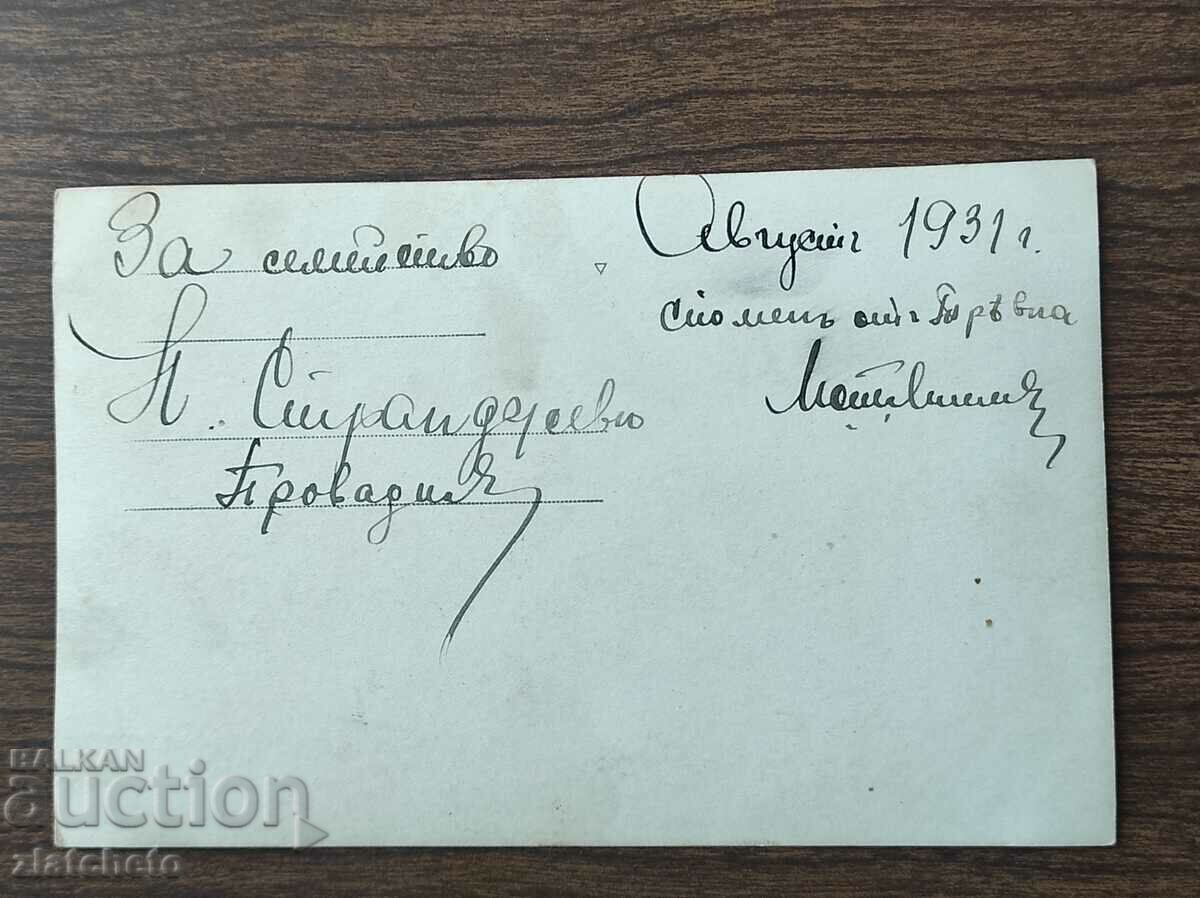 За семейство
П. Странджево
Провадия
Август 1931 г.
споменъ отъ Трѣвна
BALKAN
auction
zlatcheto